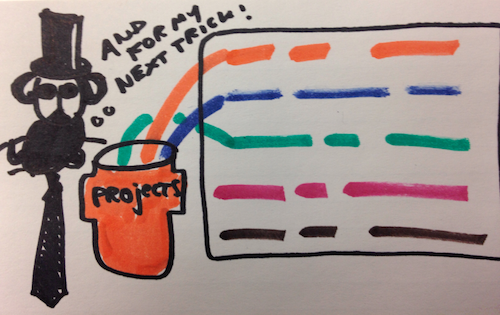 AND
FOR MY
NEXT TRICK!
PROJECTS